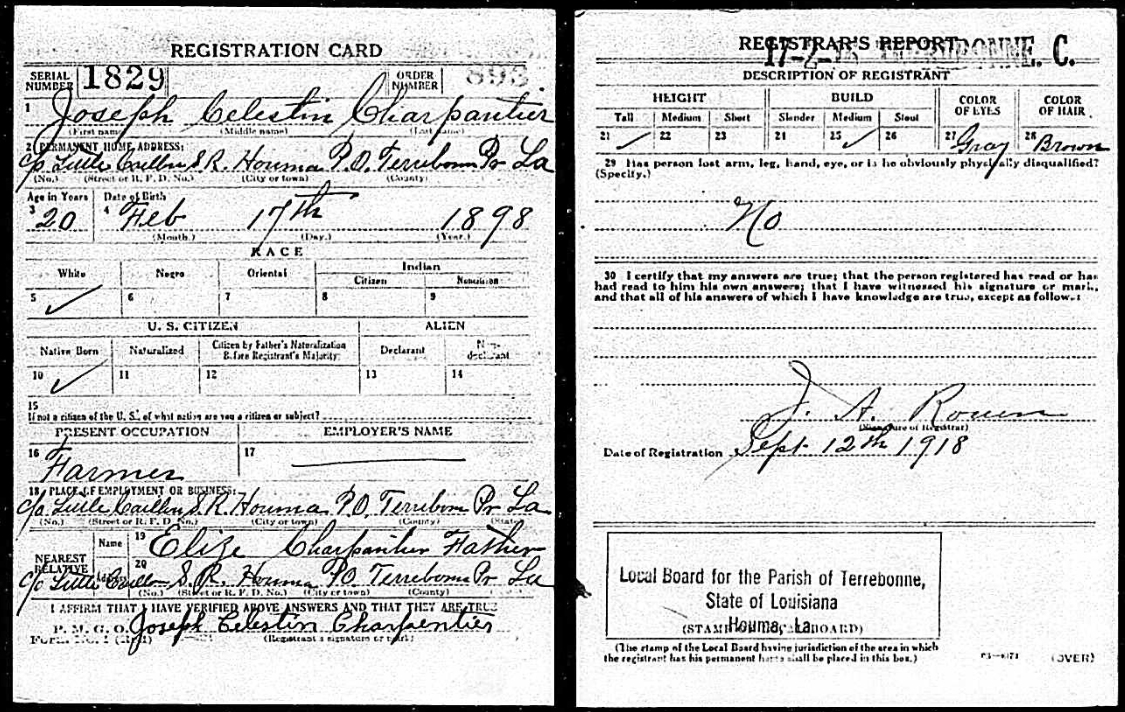 REGISTRATION CARD
SERIAL NUMBER 1829 ORDER NUMBER
1 Joseph Celestin Charpantier
(First name) (Middle name) (Last name)
2 PERMANENT HOME ADDRESS:
c/o Little Caillou S. R. Houma P.O. Terrebonne Pr La
(No.) (Street or R. F. D. No.) (City or town) (County)
Age in Years Date of Birth
3 20 4 Feb 17th 1898
(Month.) (Day.) (Year.)
RACE
White Negro Oriental Indian
Citizen Noncitizen
5 ✓ 6 7 8 9
U. S. CITIZEN ALIEN
Native Born Naturalized Citizen by Father's Naturalization Before Registrant's Majority Declarant Non-declarant
10 ✓ 11 12 13 14
15
If not a citizen of the U. S., of what nation are you a citizen or subject?
PRESENT OCCUPATION EMPLOYER'S NAME
16 Farmer 17
18 PLACE OF EMPLOYMENT OR BUSINESS:
c/o Little Caillou S. R. Houma P.O. Terrebonne Pr La
(No.) (Street or R. F. D. No.) (City or town) (County) (State)
NEAREST RELATIVE Name 19 Elize Charpantier Father
Address 20 c/o Little Caillou S. R. Houma PO Terrebonne Pr La
(No.) (Street or R. F. D. No.) (City or town) (County)
I AFFIRM THAT I HAVE VERIFIED ABOVE ANSWERS AND THAT THEY ARE TRUE
P. M. G. O. Joseph Celestin Charpentier
Form No. 1 (Registrant's signature or mark)
REGISTRAR'S REPORT
C.
DESCRIPTION OF REGISTRANT
HEIGHT BUILD COLOR OF EYES COLOR OF HAIR
Tall Medium Short Slender Medium Stout
21 ✓ 22 23 24 25 ✓ 26 27 Gray 28 Brown
29 Has person lost arm, leg, hand, eye, or is he obviously physically disqualified?
(Specify.)
No
30 I certify that my answers are true; that the person registered has read or has
had read to him his own answers; that I have witnessed his signature or mark,
and that all of his answers of which I have knowledge are true, except as follows:
J. A.
(Signature of Registrar)
Date of Registration Sept. 12th 1918
Local Board for the Parish of Terrebonne,
State of Louisiana
Houma, La.
(STAMP OF LOCAL BOARD)
(The stamp of the Local Board having jurisdiction of the area in which
the registrant has his permanent home shall be placed in this box.)
(OVER)